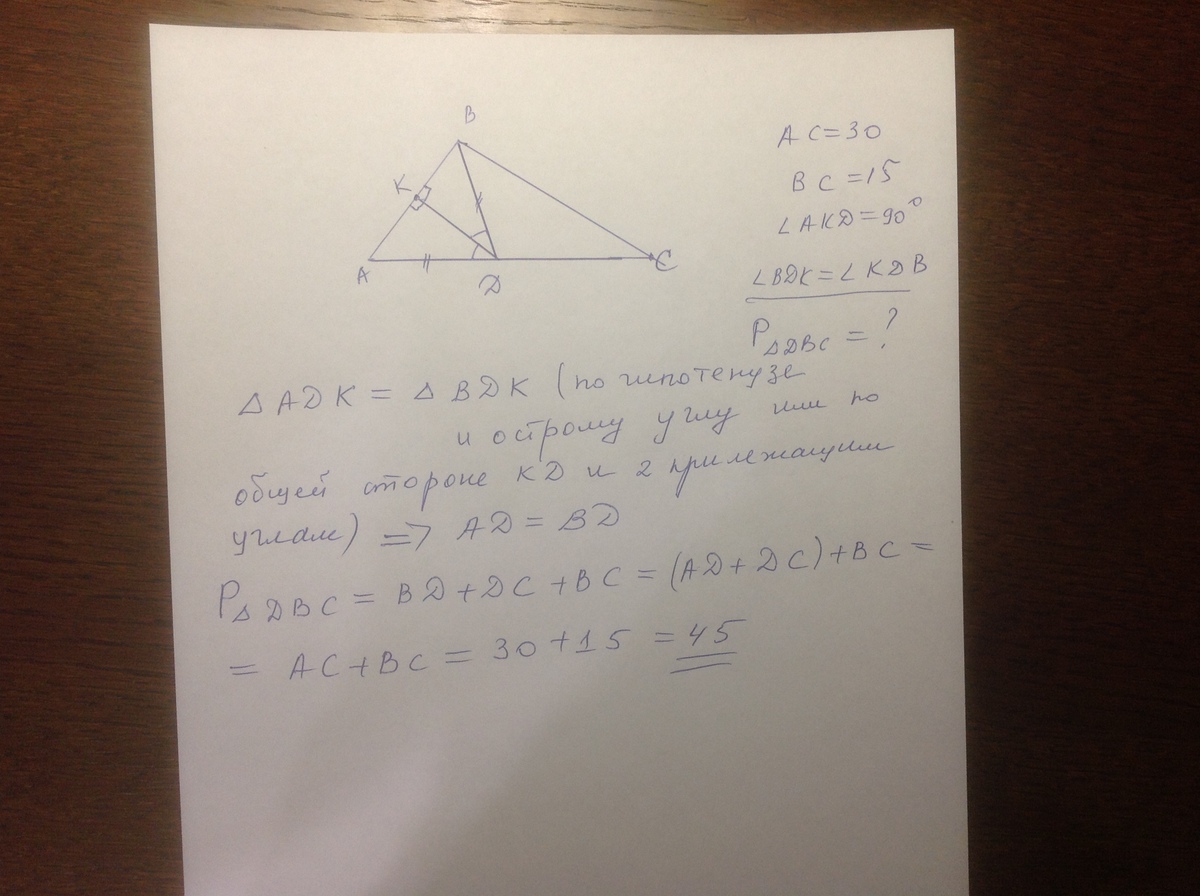 B
K
A
D
C
AC=30
BC=15
∠AKD=90°
∠BDK=∠KDB
P△DBC=?
△ADK=△BDK (по гипотенузе
и острому углу или по
общей стороне KD и 2 прилежащим
углам) => AD=BD
P△DBC=BD+DC+BC=(AD+DC)+BC=
=AC+BC=30+15=45